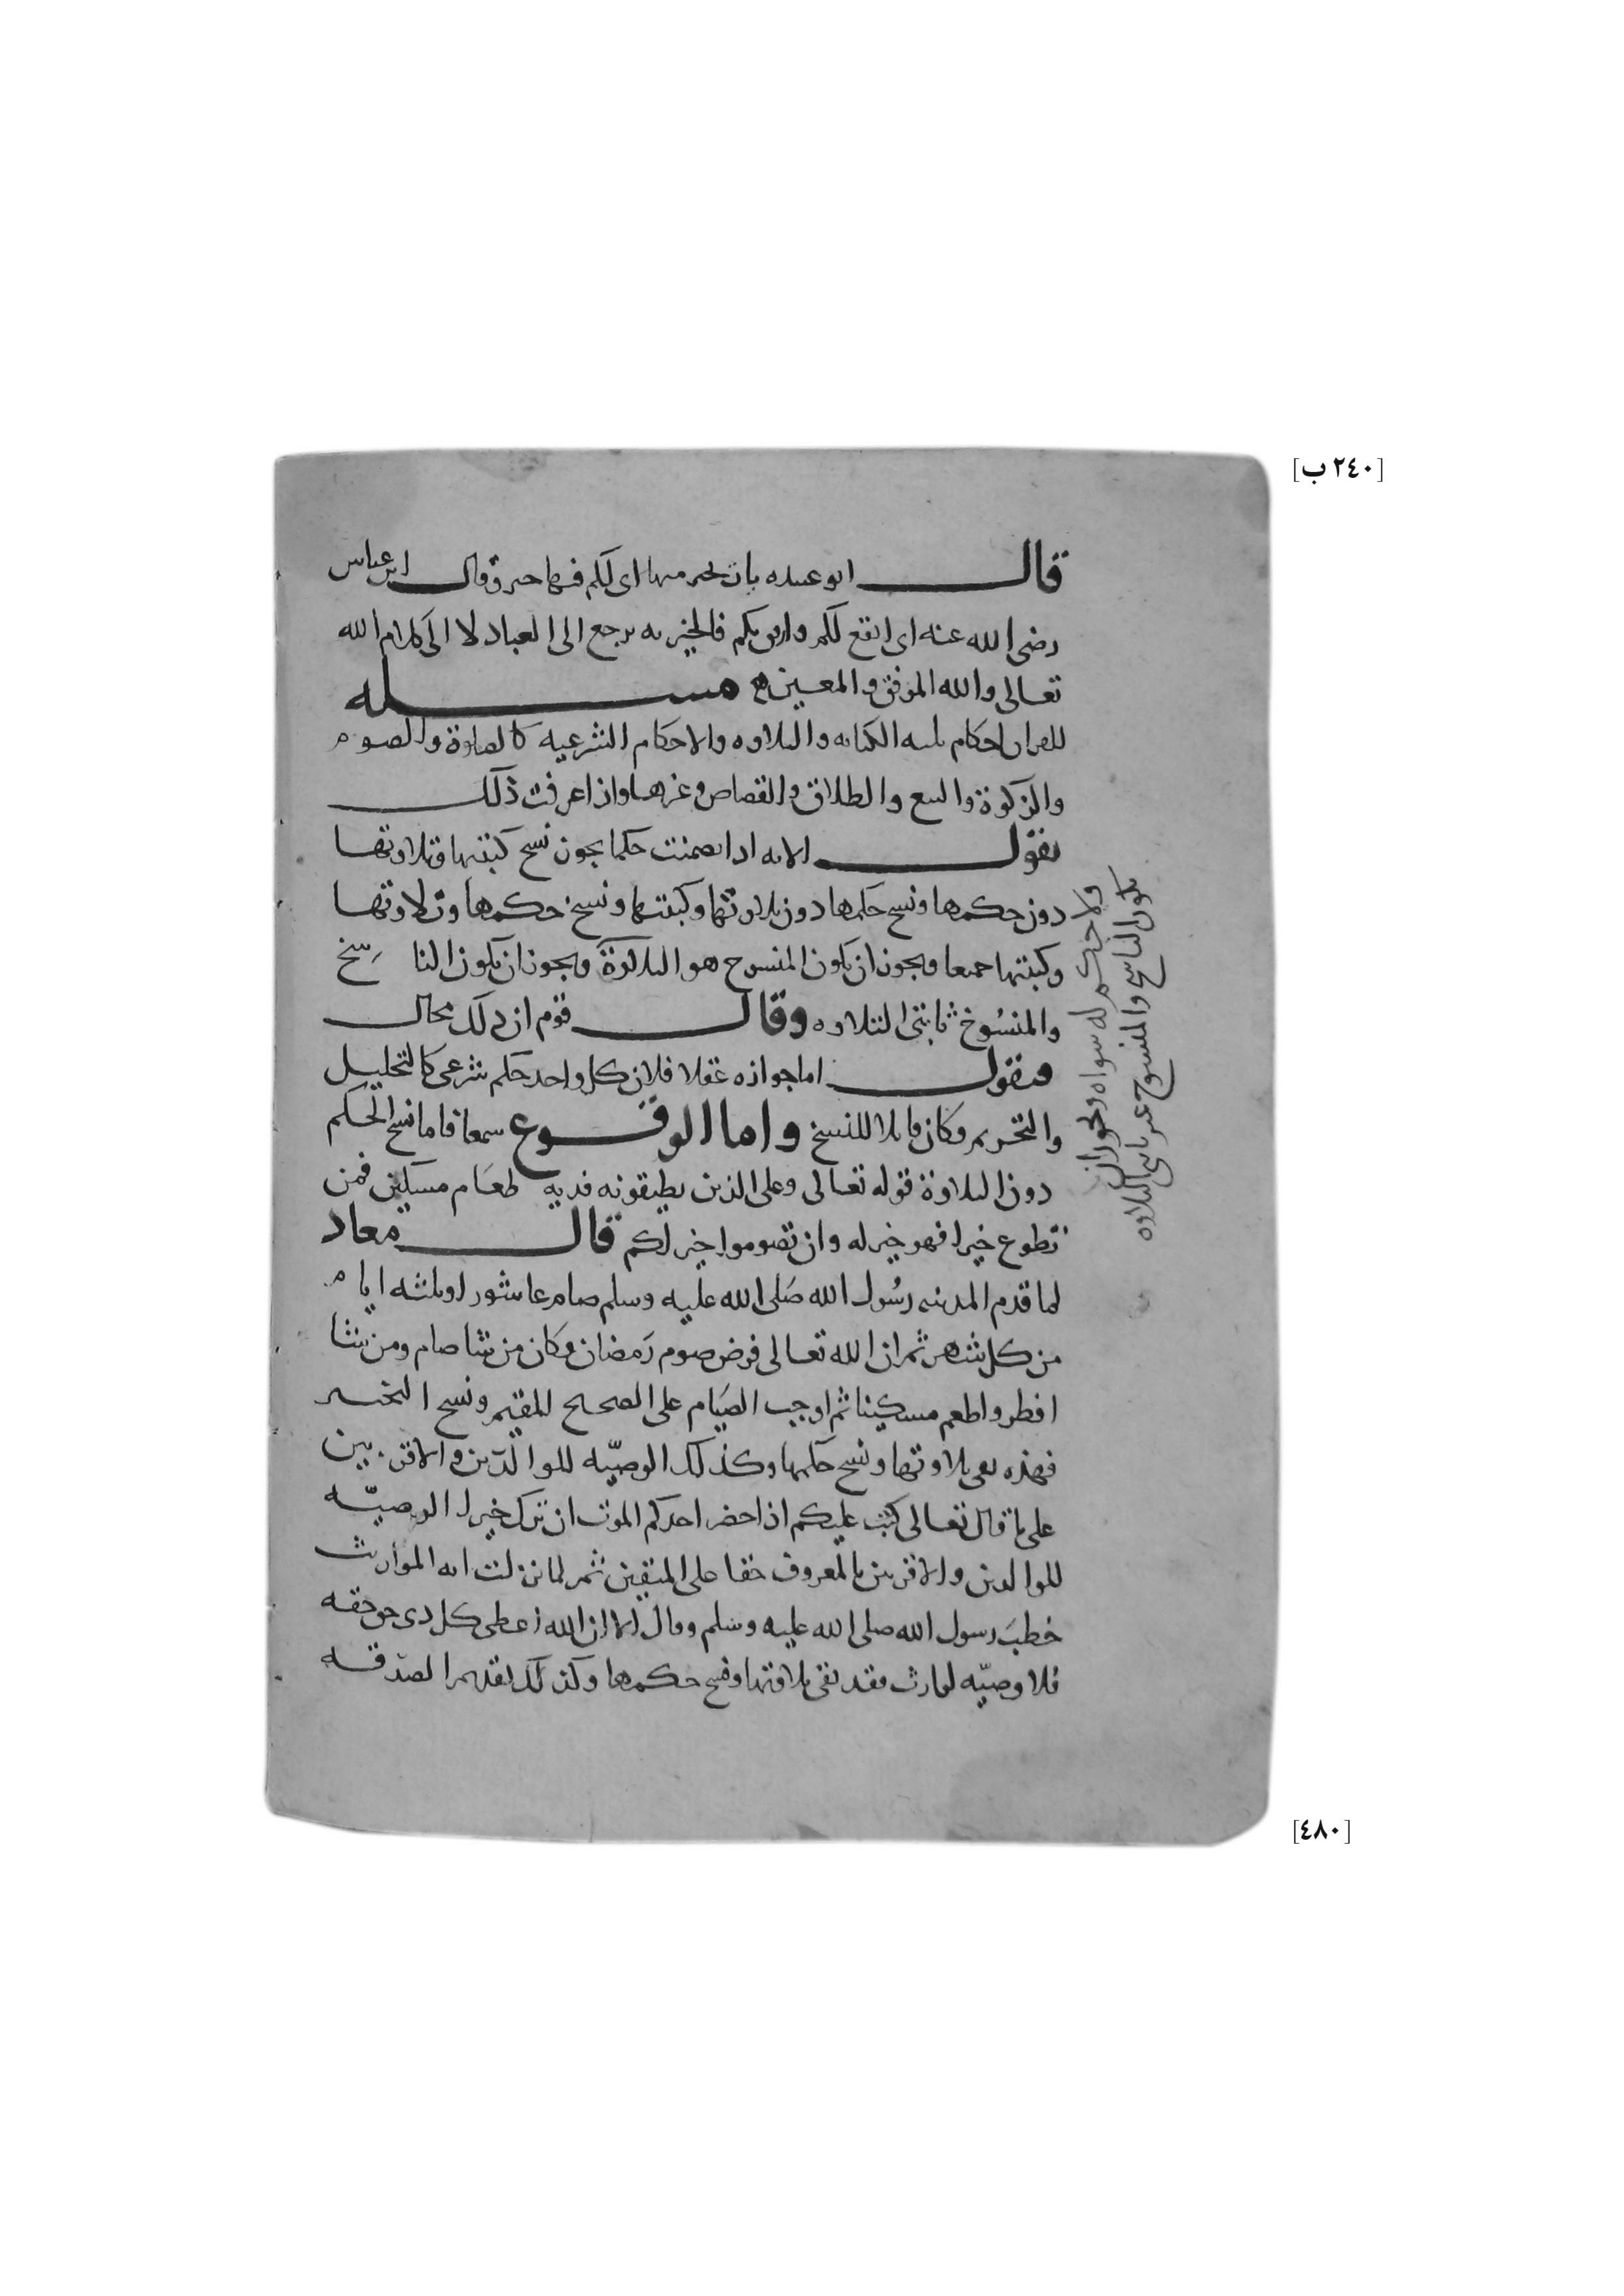 [٢٤٠ ب]
قال ابو عبيده بات بخير منها اى لكم فيها خير وقال ابن عباس
رضى الله عنه اى انفع لكم وارفق بكم فالخيريه يرجع الى العباد لا الى كلام الله
تعالى والله الموفق والمعين مسله
للقران احكام ثلثه الكتابه والتلاوه والاحكام الشرعيه كالصلوة والصوم
والزكوة والبيع والطلاق والقصاص وغيرها واذا عرفت ذلك
نقول الايه اذا تضمنت حكما يجوز نسخ كتبتها وتلاوتها
دون حكمها ونسخ حكمها دون تلاوتها وكتبتها ونسخ حكمها وتلاوتها
وكبتتها جميعا ويجوز ان يكون المنسوخ هو التلاوة ويجوز ان يكون الناسخ
والمنسُوخ ثابتى التلاوه وقال قوم ان ذلك محال
فنقول اما جوازه عقلا فلان كل واحد حكم شرعى كالتحليل
والتحريم وكان قابلا للنسخ واما الوقوع سمعا فاما نسخ الحكم
دون التلاوة قوله تعالى وعلى الذين يطيقونه فديه طعَام مسكين فمن
تطوع خيرا فهو خير له وان تصوموا خير لكم قال معاد
لما قدم المدينه رسُول الله صَلى الله عليه وسلم صام عاشورا وثلثه ايام
من كل شهر ثم ان الله تعالى فرض صوم رَمضان وكان من شا صام ومن شا
افطر واطعم مسكينا ثم اوجب الصيَام على الصحيح المقيم ونسخ التخيير
فهذه بقى تلاوتها ونسخ حكمها وكذلك الوصيّه للوالدَين والاقربين
على ما قال تعالى كتب عليكم اذا حضر احدكم الموت ان ترك خيرا الوصيّه
للوالدين والاقربين بالمعروف حقا على المتقين ثم لما نزلت ايه المواريث
خطبَ رسول الله صلى الله عليه وسلم وقال الا ان الله اعطى كل ذى حق حقه
فلا وصيّه لوارث فقد بقى تلاوتها ونسخ حكمها وكذلك تقديم الصدقه
ولا حكم له سواه ويجوز ان
يكون الناسخ والمنسوخ غير ثابتى التلاوه
[٤٨٠]